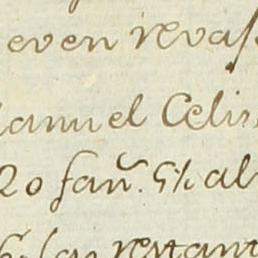 even revas
Manuel Celis
20 fan̄. 5½ al
las restant